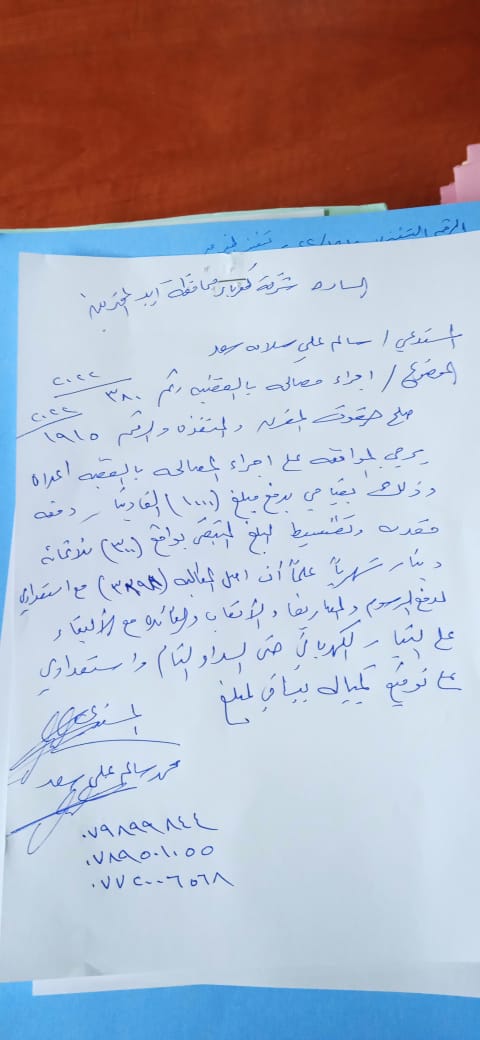 الرقم التنفيذي
الساده شركة كهرباء محافظة اربد المحترمين
المستدعي / سالم علي سلامه سعد
الموضوع / اجراء مصالحه بالقضيه رقم ٣٨٠ ٢٠٢٢
صلح حقوق المفرق والمنفذه والرقم ١٩١٥ ٢٠٢٢
يرجى الموافقه على اجراء المصالحه بالقضيه اعلاه
وذلك بقيامي بدفع مبلغ (١٠٠٠) الف دينار دفعه
مقدمه وتقسيط المبلغ المتبقي بواقع (٣٠٠) ثلاثمائة
دينار شهرياً علماً أن اصل المطالبه (٣٨٩٨) مع استعدادي
لدفع الرسوم والمصاريف والأتعاب والفائده مع الأبقاء
على التيار الكهربائي حتى السداد التام واستعدادي
على توقيع كمبياله بباقي المبلغ
المستدعي
محمد سالم علي سعد
٠٧٩٨٩٩٨٤٤
٠٧٨٩٥٠١٠٥٥
٠٧٧٢٠٠٦٥٦٨